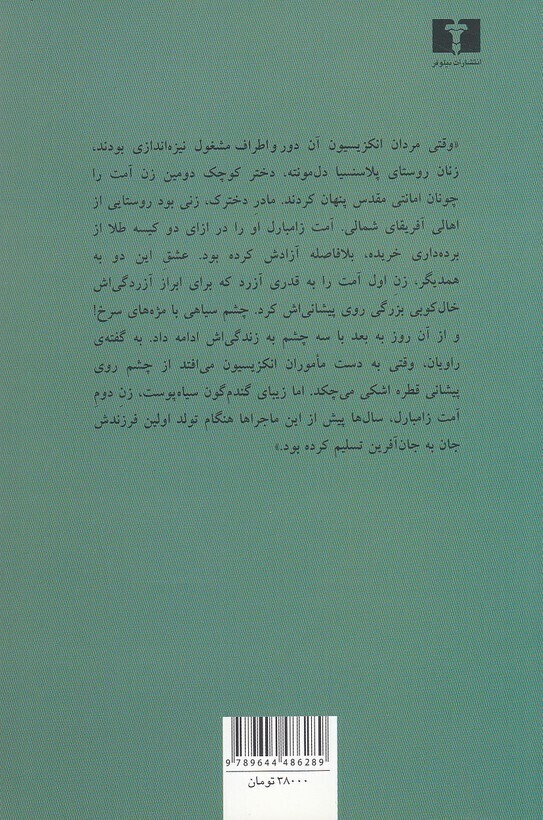 انتشارات نیلوفر
«وقتی مردان انکزیسیون آن دور و اطراف مشغول نیزه‌اندازی بودند،
زنان روستای پلاسنسیا دل‌مونته، دختر کوچک دومین زن آمت را
چونان امانتی مقدس پنهان کردند. مادرِ دخترک، زنی بود روستایی از
اهالی آفریقای شمالی. آمت زامبارل او را در ازای دو کیسه طلا از
برده‌داری خریده، بلافاصله آزادش کرده بود. عشقِ این دو به
همدیگر، زنِ اول آمت را به قدری آزرد که برای ابراز آزردگی‌اش
خال‌کوبی بزرگی روی پیشانی‌اش کرد. چشم سیاهی با مژه‌های سرخ!
و از آن روز به بعد با سه چشم به زندگی‌اش ادامه داد. به گفته‌ی
راویان، وقتی به دست مأموران انکزیسیون می‌افتد از چشم روی
پیشانی قطره اشکی می‌چکد. اما زیبای گندم‌گون سیاه‌پوست، زن دومِ
آمت زامبارل، سال‌ها پیش از این ماجراها هنگام تولد اولین فرزندش
جان به جان‌آفرین تسلیم کرده بود.»
9 789644 486289
۳۸۰۰۰ تومان